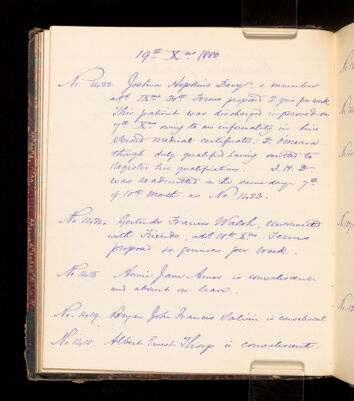 19th Xmo 1880
No. 1422 Joshua Hopkins Davy, a member
adt IXmo 30th Terms proposed 2 gns per week
This patient was discharged improved on
7th Xmo owing to an informality in his
second medical certificate; Dr.
though duly qualified having omitted to
register his qualifications. J. H. D-
was readmitted on the same day 7th
of 10th Month as No 1423.
No 1424 Gertrude Frances Walsh, Unconnected
with Friends, adt 18th Xmo Terms
proposed 4 guineas per week.
No 1415 Annie Jane Amos is convalescent
and absent on leave.
No. 1419. Bryan John Francis is convalescent
No 1410 Albert Ernest Thorp is convalescent.